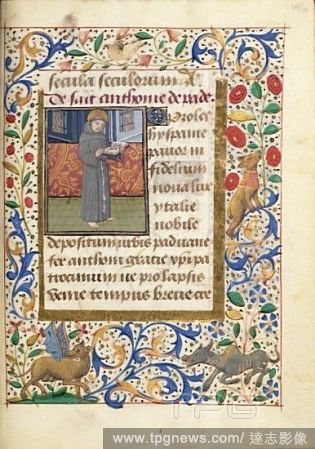 secula seculorum A
De sait anthonie de pade
O Proles
hyspanie
pavor in
fidelium
nova lux
ytalie
nobile
depositum urbis paduane
fer anthoni gratie xpi pa
trocinium ne prolapsis
venie tempus breve cre
TPG
www.tpgnews.com/ 達志影像